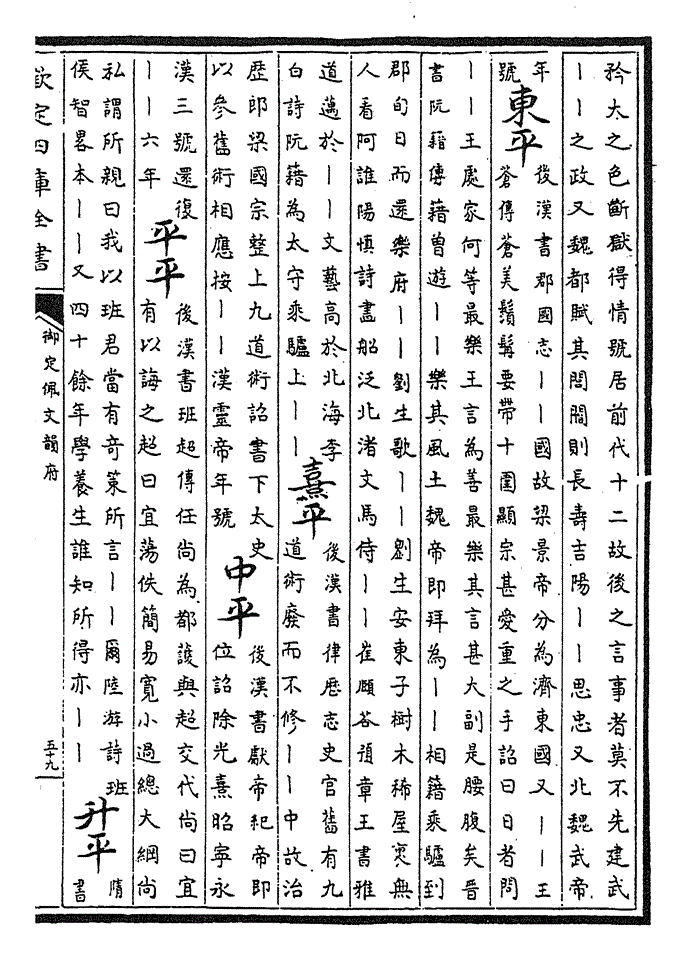 矜大之色斷獄得情號居前代十二故後之言事者莫不先建武
丨丨之政又魏都賦其閭閻則長壽吉陽丨丨思忠又北魏武帝
年
號
東平
後漢書郡國志丨丨國故梁景帝分為濟東國又丨丨王
蒼傳蒼美鬚髯要帶十圍顯宗甚愛重之手詔曰日者問
丨丨王處家何等最樂王言為善最樂其言甚大副是腰腹矣晉
書阮籍傳籍曾遊丨丨樂其風土魏帝即拜為丨丨相籍乘驢到
郡旬日而還樂府丨丨劉生歌丨丨劉生安東子樹木稀屋裏無
人看阿誰陽慎詩畫船泛北渚文馬侍丨丨崔顧答預章王書雅
道邁於丨丨文藝高於北海李
白詩阮籍為太守乘驢上丨丨
熹平
後漢書律厯志史官舊有九
道術廢而不修丨丨中故治
歴郎梁國宗整上九道術詔書下太史
以參舊術相應按丨丨漢靈帝年號
中平
後漢書獻帝紀帝即
位詔除光熹昭寧永
漢三號還復
丨丨六年
平平
後漢書班超傳任尚為都護與超交代尚曰宜
有以誨之超曰宜蕩佚簡易寬小過總大綱尚
私謂所親曰我以班君當有奇策所言丨丨爾陸游詩班
侯智畧本丨丨又四十餘年學養生誰知所得亦丨丨
升平
隋
書
欽定四庫全書
御定佩文韻府
五十九